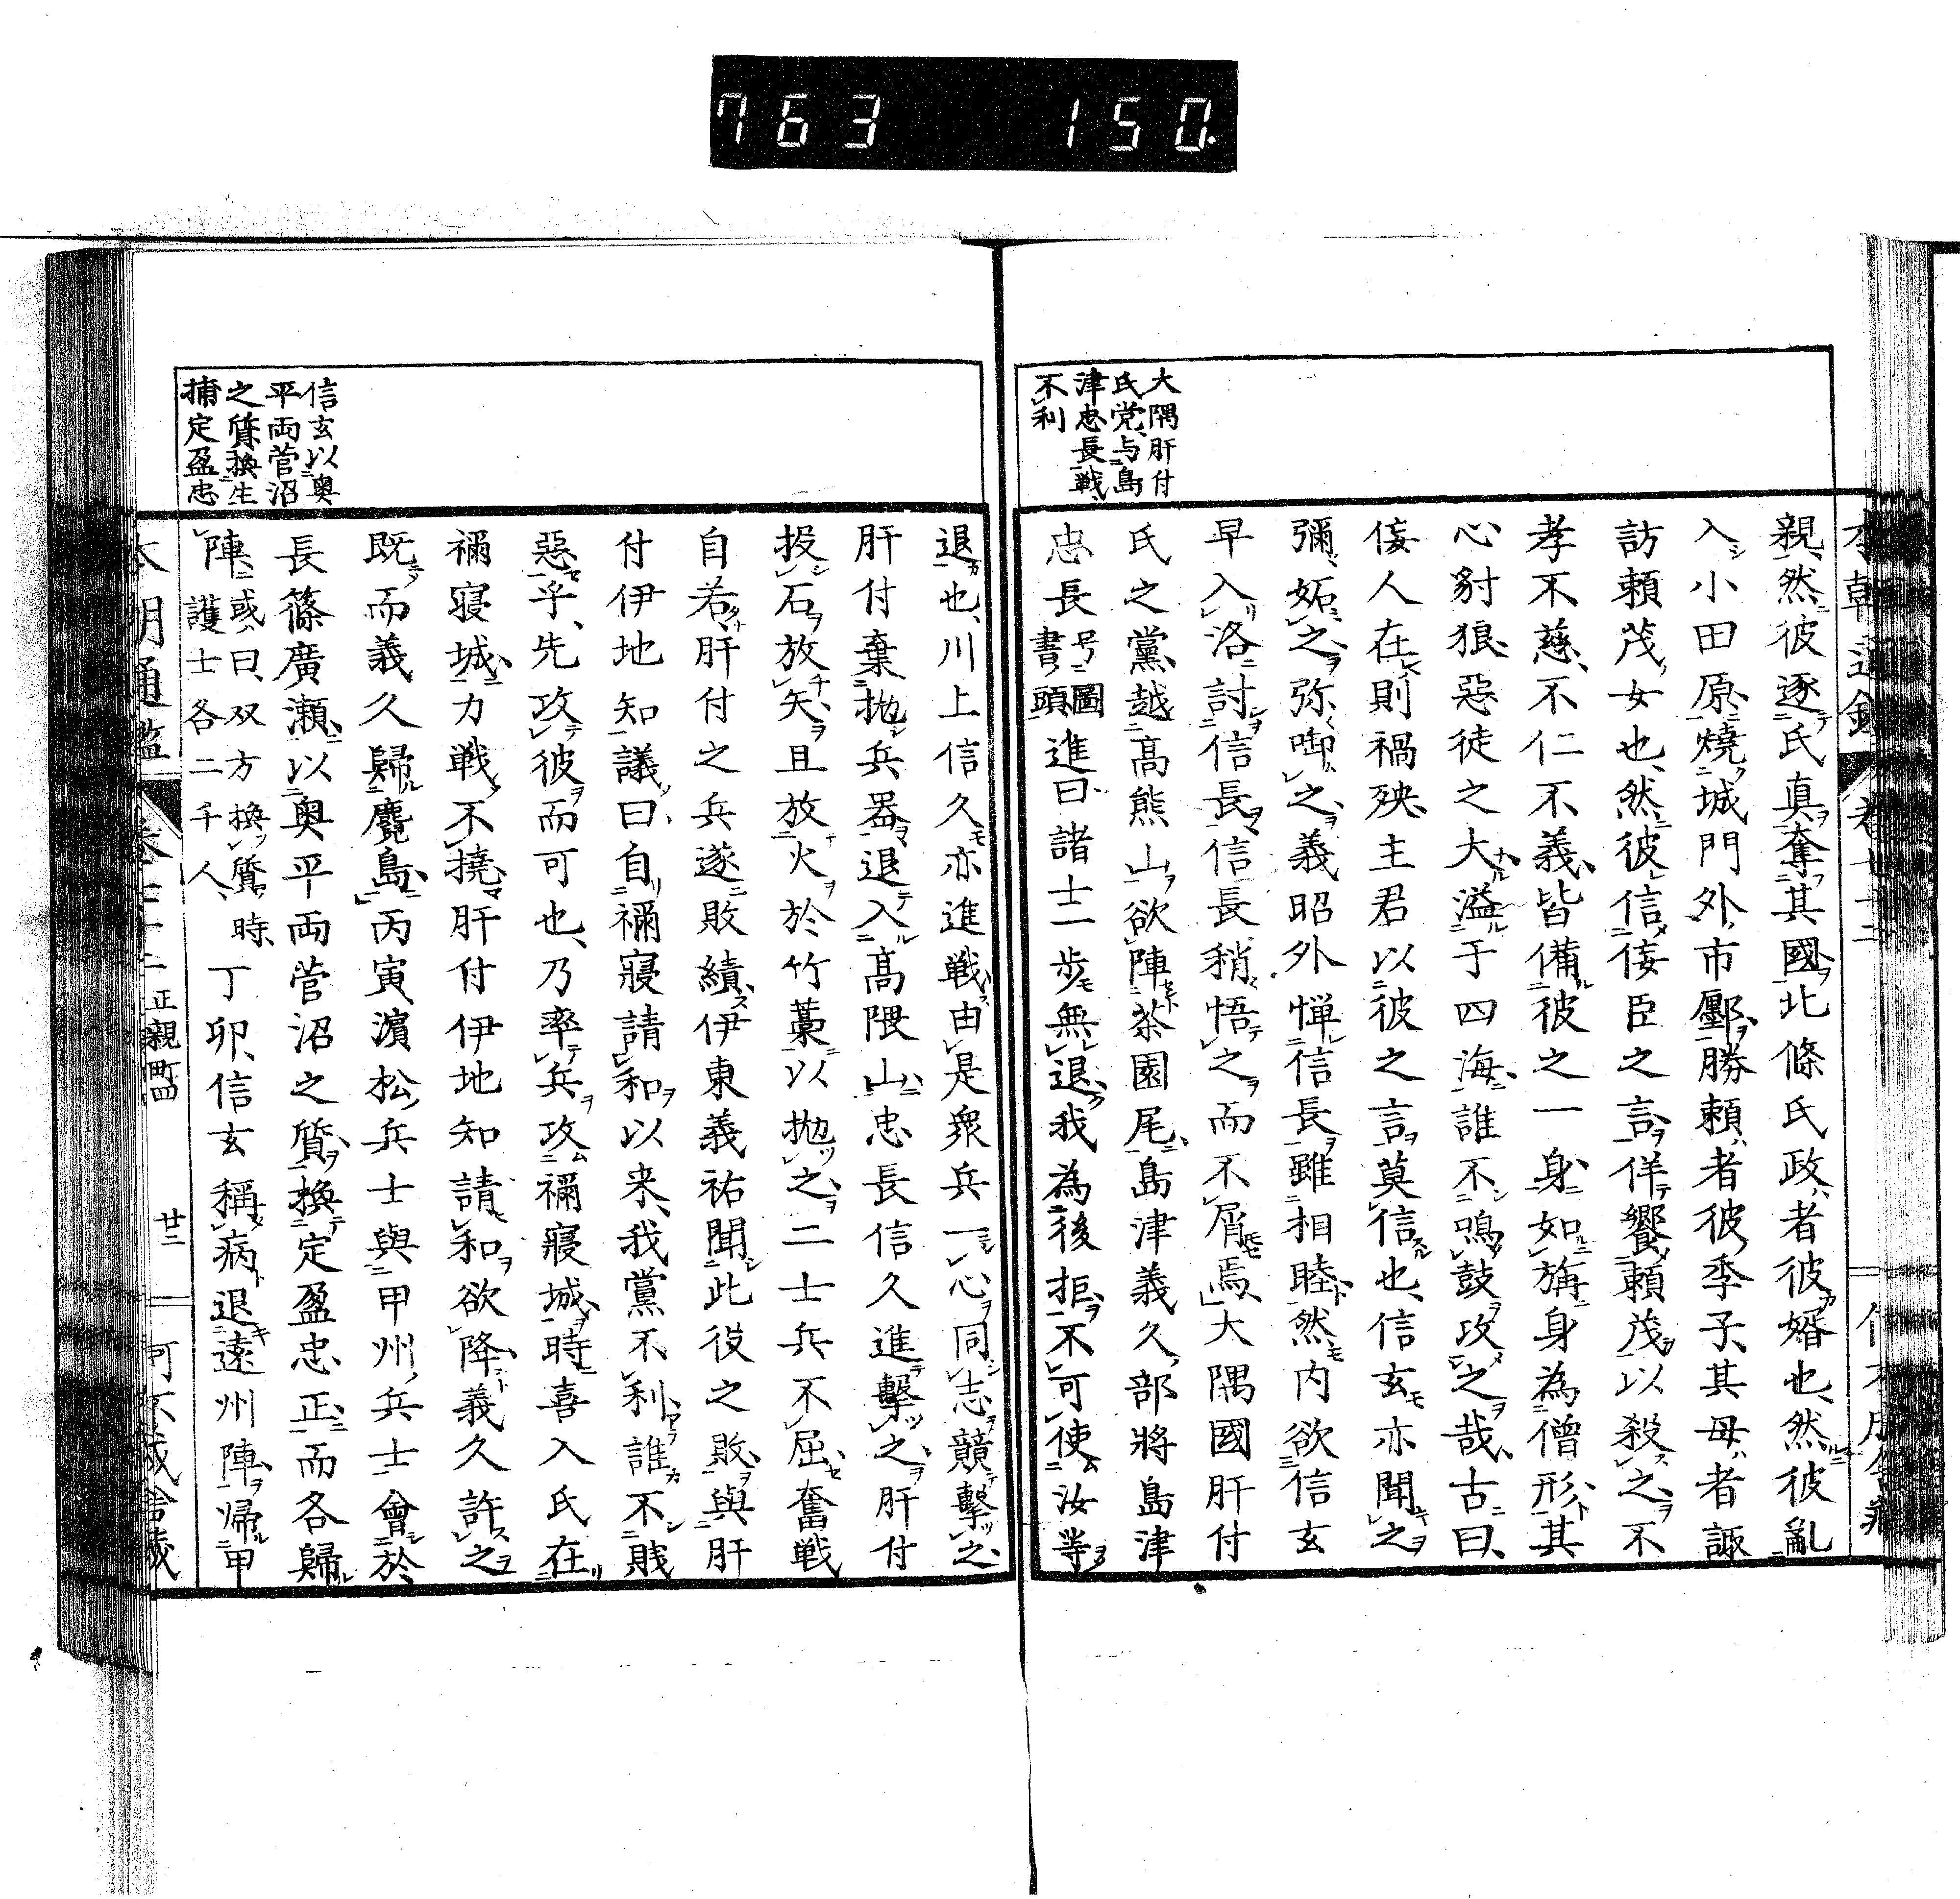 763 150
大隅肝付
氏党与島
津忠長戦
不利
親然彼逐氏真奪其國北條氏政者彼婿也然彼亂
入小田原燒城門外市鄽勝頼者彼季子其母者諏
訪頼茂女也然彼信佞臣之言佯饗頼茂以殺之不
孝不慈不仁不義皆備彼之一身如旃身為僧形其
心豺狼惡徒之大溢于四海誰不鳴鼓攻之哉古曰
佞人在則禍殃主君以彼之言莫信也信玄亦聞之
彌妬之弥啣之義昭外憚信長雖相睦然内欲信玄
早入洛討信長信長稍悟之而不屑焉大隅國肝付
氏之黨越高熊山欲陣茶園尾島津義久部將島津
忠長号圖書頭進曰諸士一歩無退我為後拒不可使汝等
信玄以奥
平両菅沼
之質換生
捕定盈忠
退也川上信久亦進戦由是衆兵一心同志競擊之
肝付棄拋兵器退入高隈山忠長信久進擊之肝付
投石放矢且放火於竹藁以拋之二士兵不屈奮戦
自若肝付之兵遂敗績伊東義祐聞此役之敗與肝
付伊地知議曰自禰寢請和以来我黨不利誰不賎
惡乎先攻彼而可也乃率兵攻禰寢城時喜入氏在
禰寢城力戦不撓肝付伊地知請和欲降義久許之
既而義久歸麑島丙寅濵松兵士與甲州兵士會於
長篠廣瀬以奥平両菅沼之質換定盈忠正而各歸
陣或曰双方換質時護士各二千人丁卯信玄稱病退遠州陣帰甲
正親町 廿二